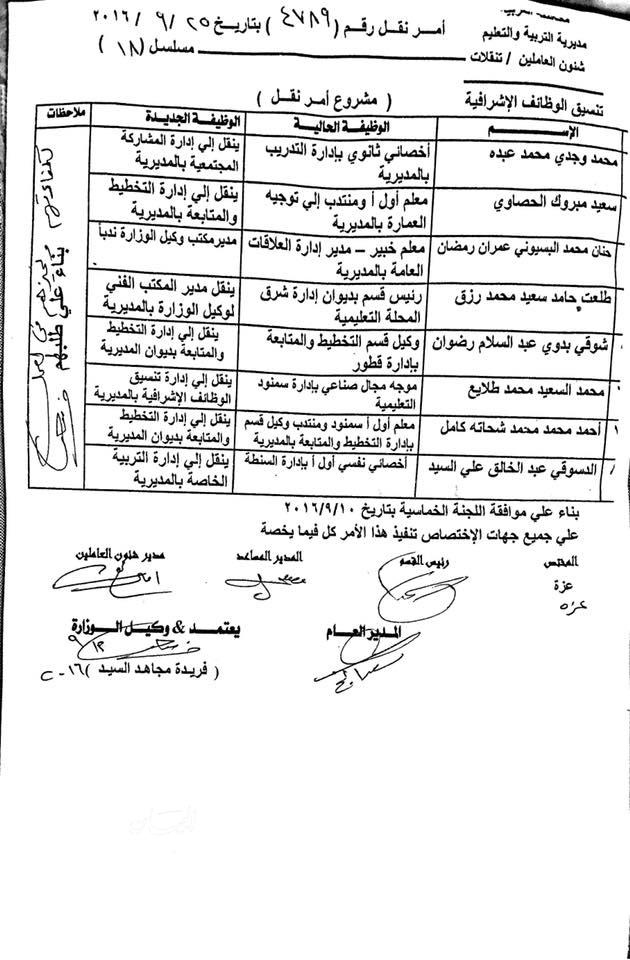 مديرية التربية والتعليم
شئون العاملين / تنقلات
أمر نقل رقم ( ٤٧٨٩ ) بتاريخ ٢٥ / ٩ / ٢٠١٦
مسلسل ( ١٨ )
تنسيق الوظائف الإشرافية
( مشروع أمر نقل )
الإســـم الوظيفة الحالية الوظيفة الجديدة ملاحظات
محمد وجدي محمد عبده أخصائي ثانوي بإدارة التدريب بالمديرية ينقل إلي إدارة المشاركة المجتمعية بالمديرية
سعيد مبروك الحصاوي معلم أول أ ومنتدب إلي توجيه العمارة بالمديرية ينقل إلي إدارة التخطيط والمتابعة بالمديرية
حنان محمد البسيوني عمران رمضان معلم خبير – مدير إدارة العلاقات العامة بالمديرية مديرمكتب وكيل الوزارة ندباً
طلعت حامد سعيد محمد رزق رئيس قسم بديوان إدارة شرق المحلة التعليمية ينقل مدير المكتب الفني لوكيل الوزارة بالمديرية
شوقي بدوي عبد السلام رضوان وكيل قسم التخطيط والمتابعة بإدارة قطور ينقل إلي إدارة التخطيط والمتابعة بديوان المديرية
محمد السعيد محمد طلايع موجه مجال صناعي بإدارة سمنود التعليمية ينقل إلي إدارة تنسيق الوظائف الإشرافية بالمديرية
أحمد محمد محمد شحاته كامل معلم أول أ سمنود ومنتدب وكيل قسم بإدارة التخطيط والمتابعة بالمديرية ينقل إلي إدارة التخطيط والمتابعة بديوان المديرية
الدسوقي عبد الخالق علي السيد أخصائي نفسي أول أ بإدارة السنطة ينقل إلي إدارة التربية الخاصة بالمديرية
بناء علي طلبهم
بناء علي موافقة اللجنة الخماسية بتاريخ ٢٠١٦/٩/١٠
علي جميع جهات الإختصاص تنفيذ هذا الأمر كل فيما يخصة
المختص رئيس القسم المدير المساعد مدير شئون العاملين
عزة
عزه
المدير العام يعتمد & وكيل الــوزارة
( فريدة مجاهد السيد ) ٢٠١٦